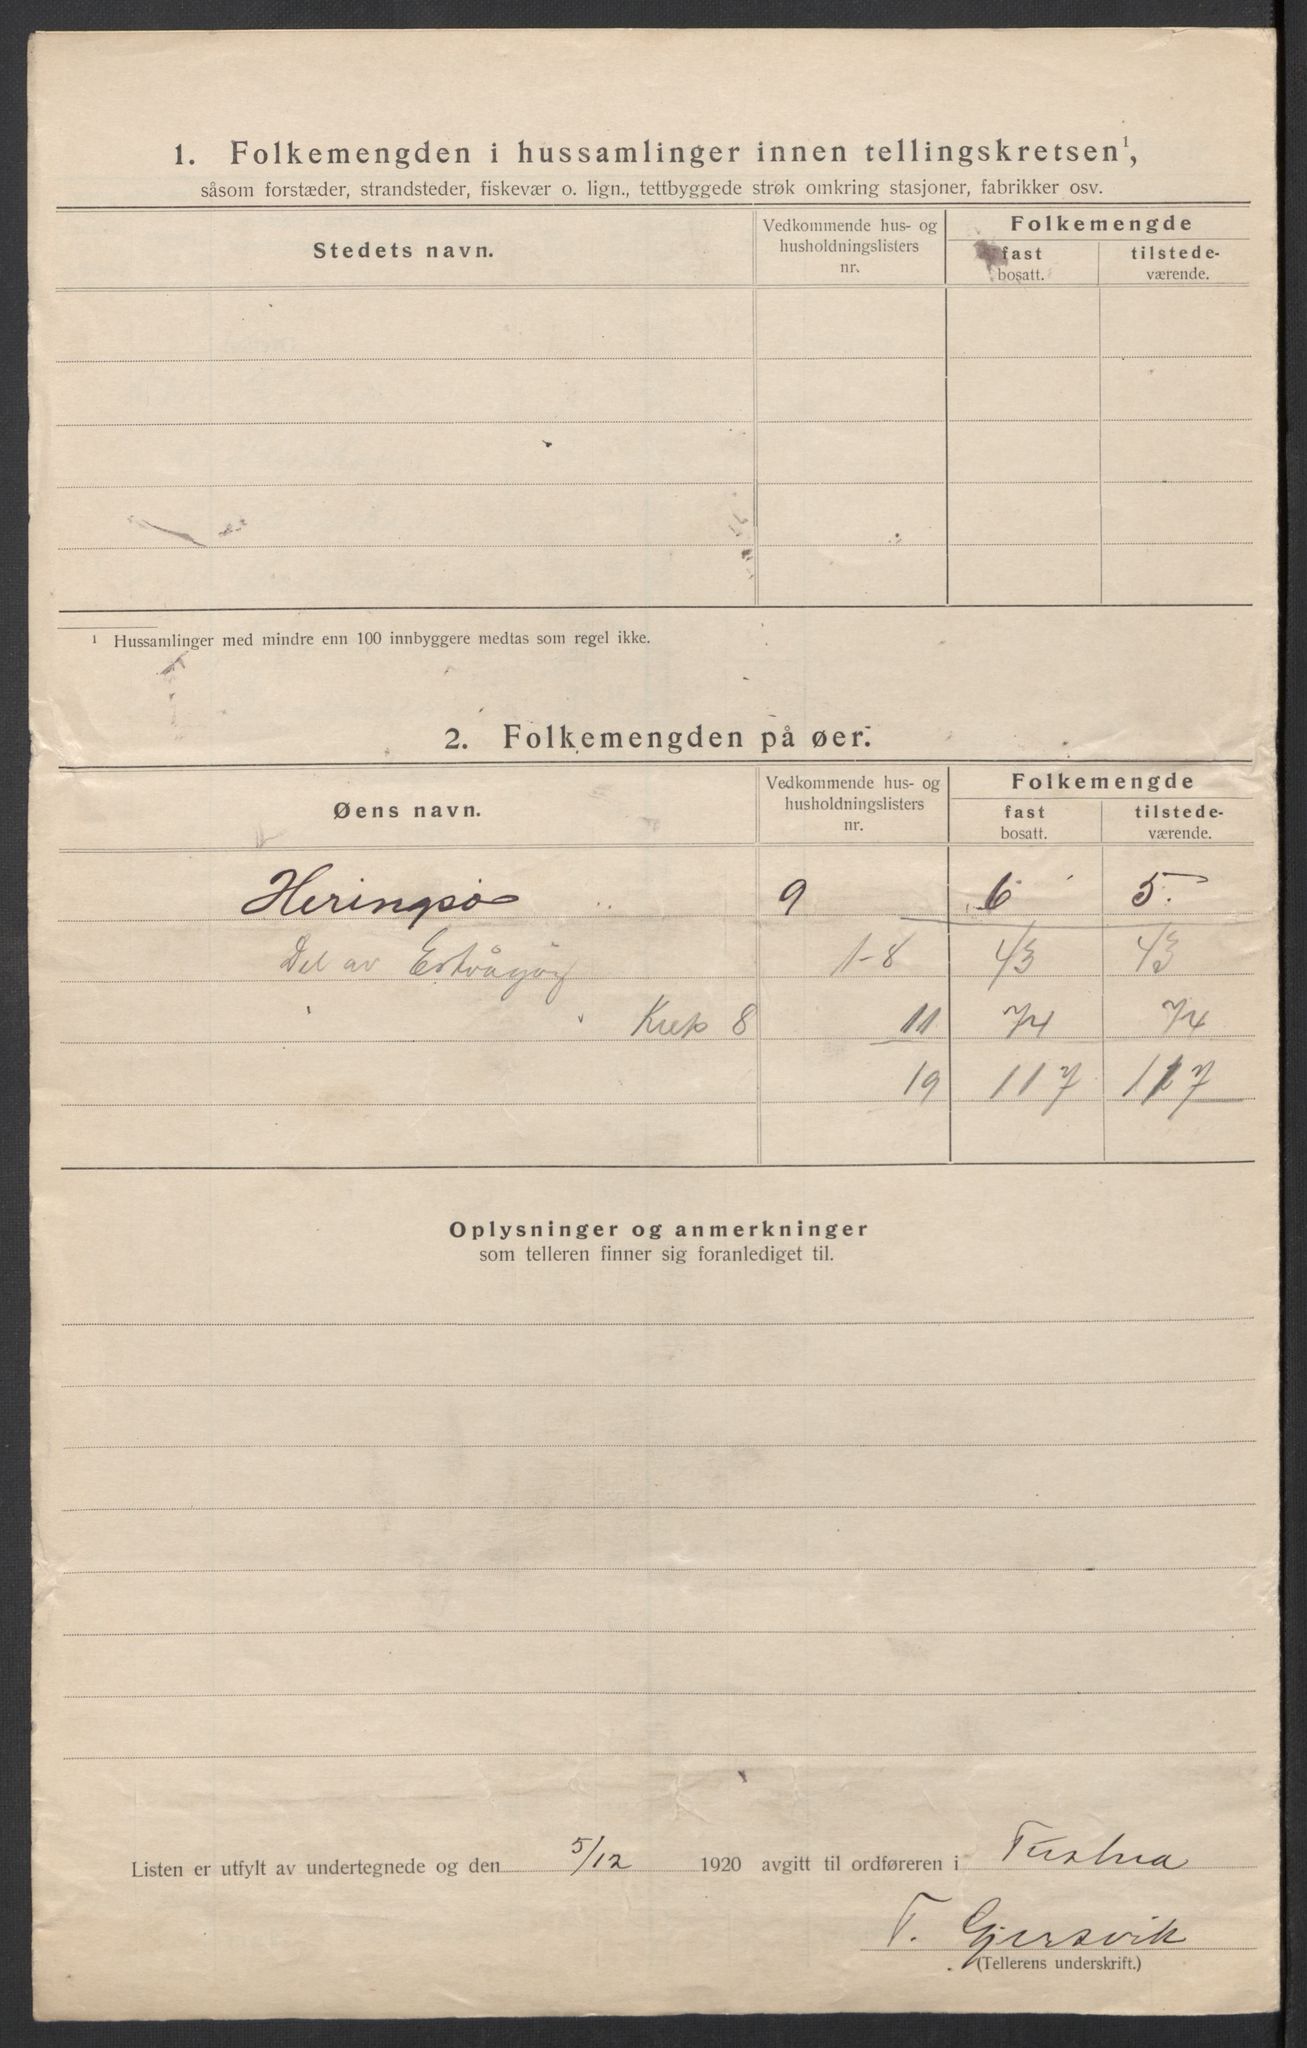 1. Folkemengden i hussamlinger innen tellingskretsen¹,
såsom forstæder, strandsteder, fiskevær o. lign., tettbyggede strøk omkring stasjoner, fabrikker osv.
Stedets navn.
Vedkommende hus- og husholdningslisters nr.
Folkemengde
fast bosatt.
tilstede- værende.
¹ Hussamlinger med mindre enn 100 innbyggere medtas som regel ikke.
2. Folkemengden på øer.
Øens navn.
Vedkommende hus- og husholdningslisters nr.
Folkemengde
fast bosatt.
tilstede- værende.
Heringsø 9 6 5
Del av 1-8 43 43
8 11 74 74
19 117 117
Oplysninger og anmerkninger
som telleren finner sig foranlediget til.
Listen er utfylt av undertegnede og den 5/12 1920 avgitt til ordføreren i Tustna
T. Gjersvik
(Tellerens underskrift.)